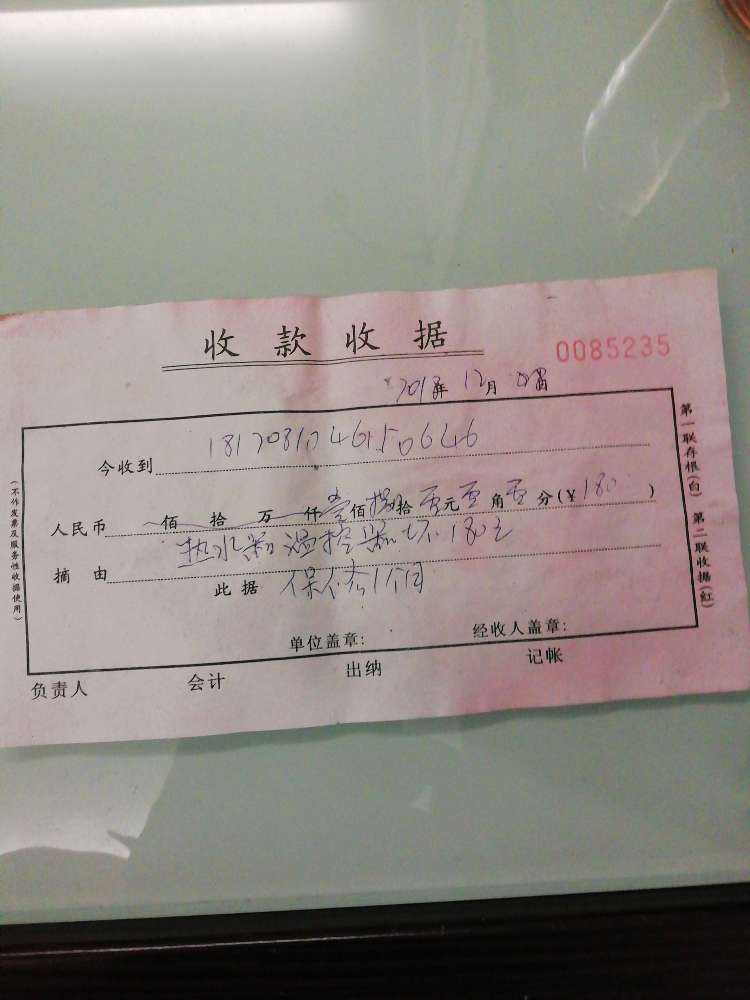 收款收据
0085235
年 12月 日
今收到 1817081046150646
人民币 佰 拾 万 仟 壹佰 捌拾 零元 零角 零分(¥180 )
摘由 热水器温控器坏180元
此据 保修1个月
单位盖章: 经收人盖章:
负责人 会计 出纳 记帐
(不作发票及服务性收据使用)
第一联存根(白) 第二联收据(红)